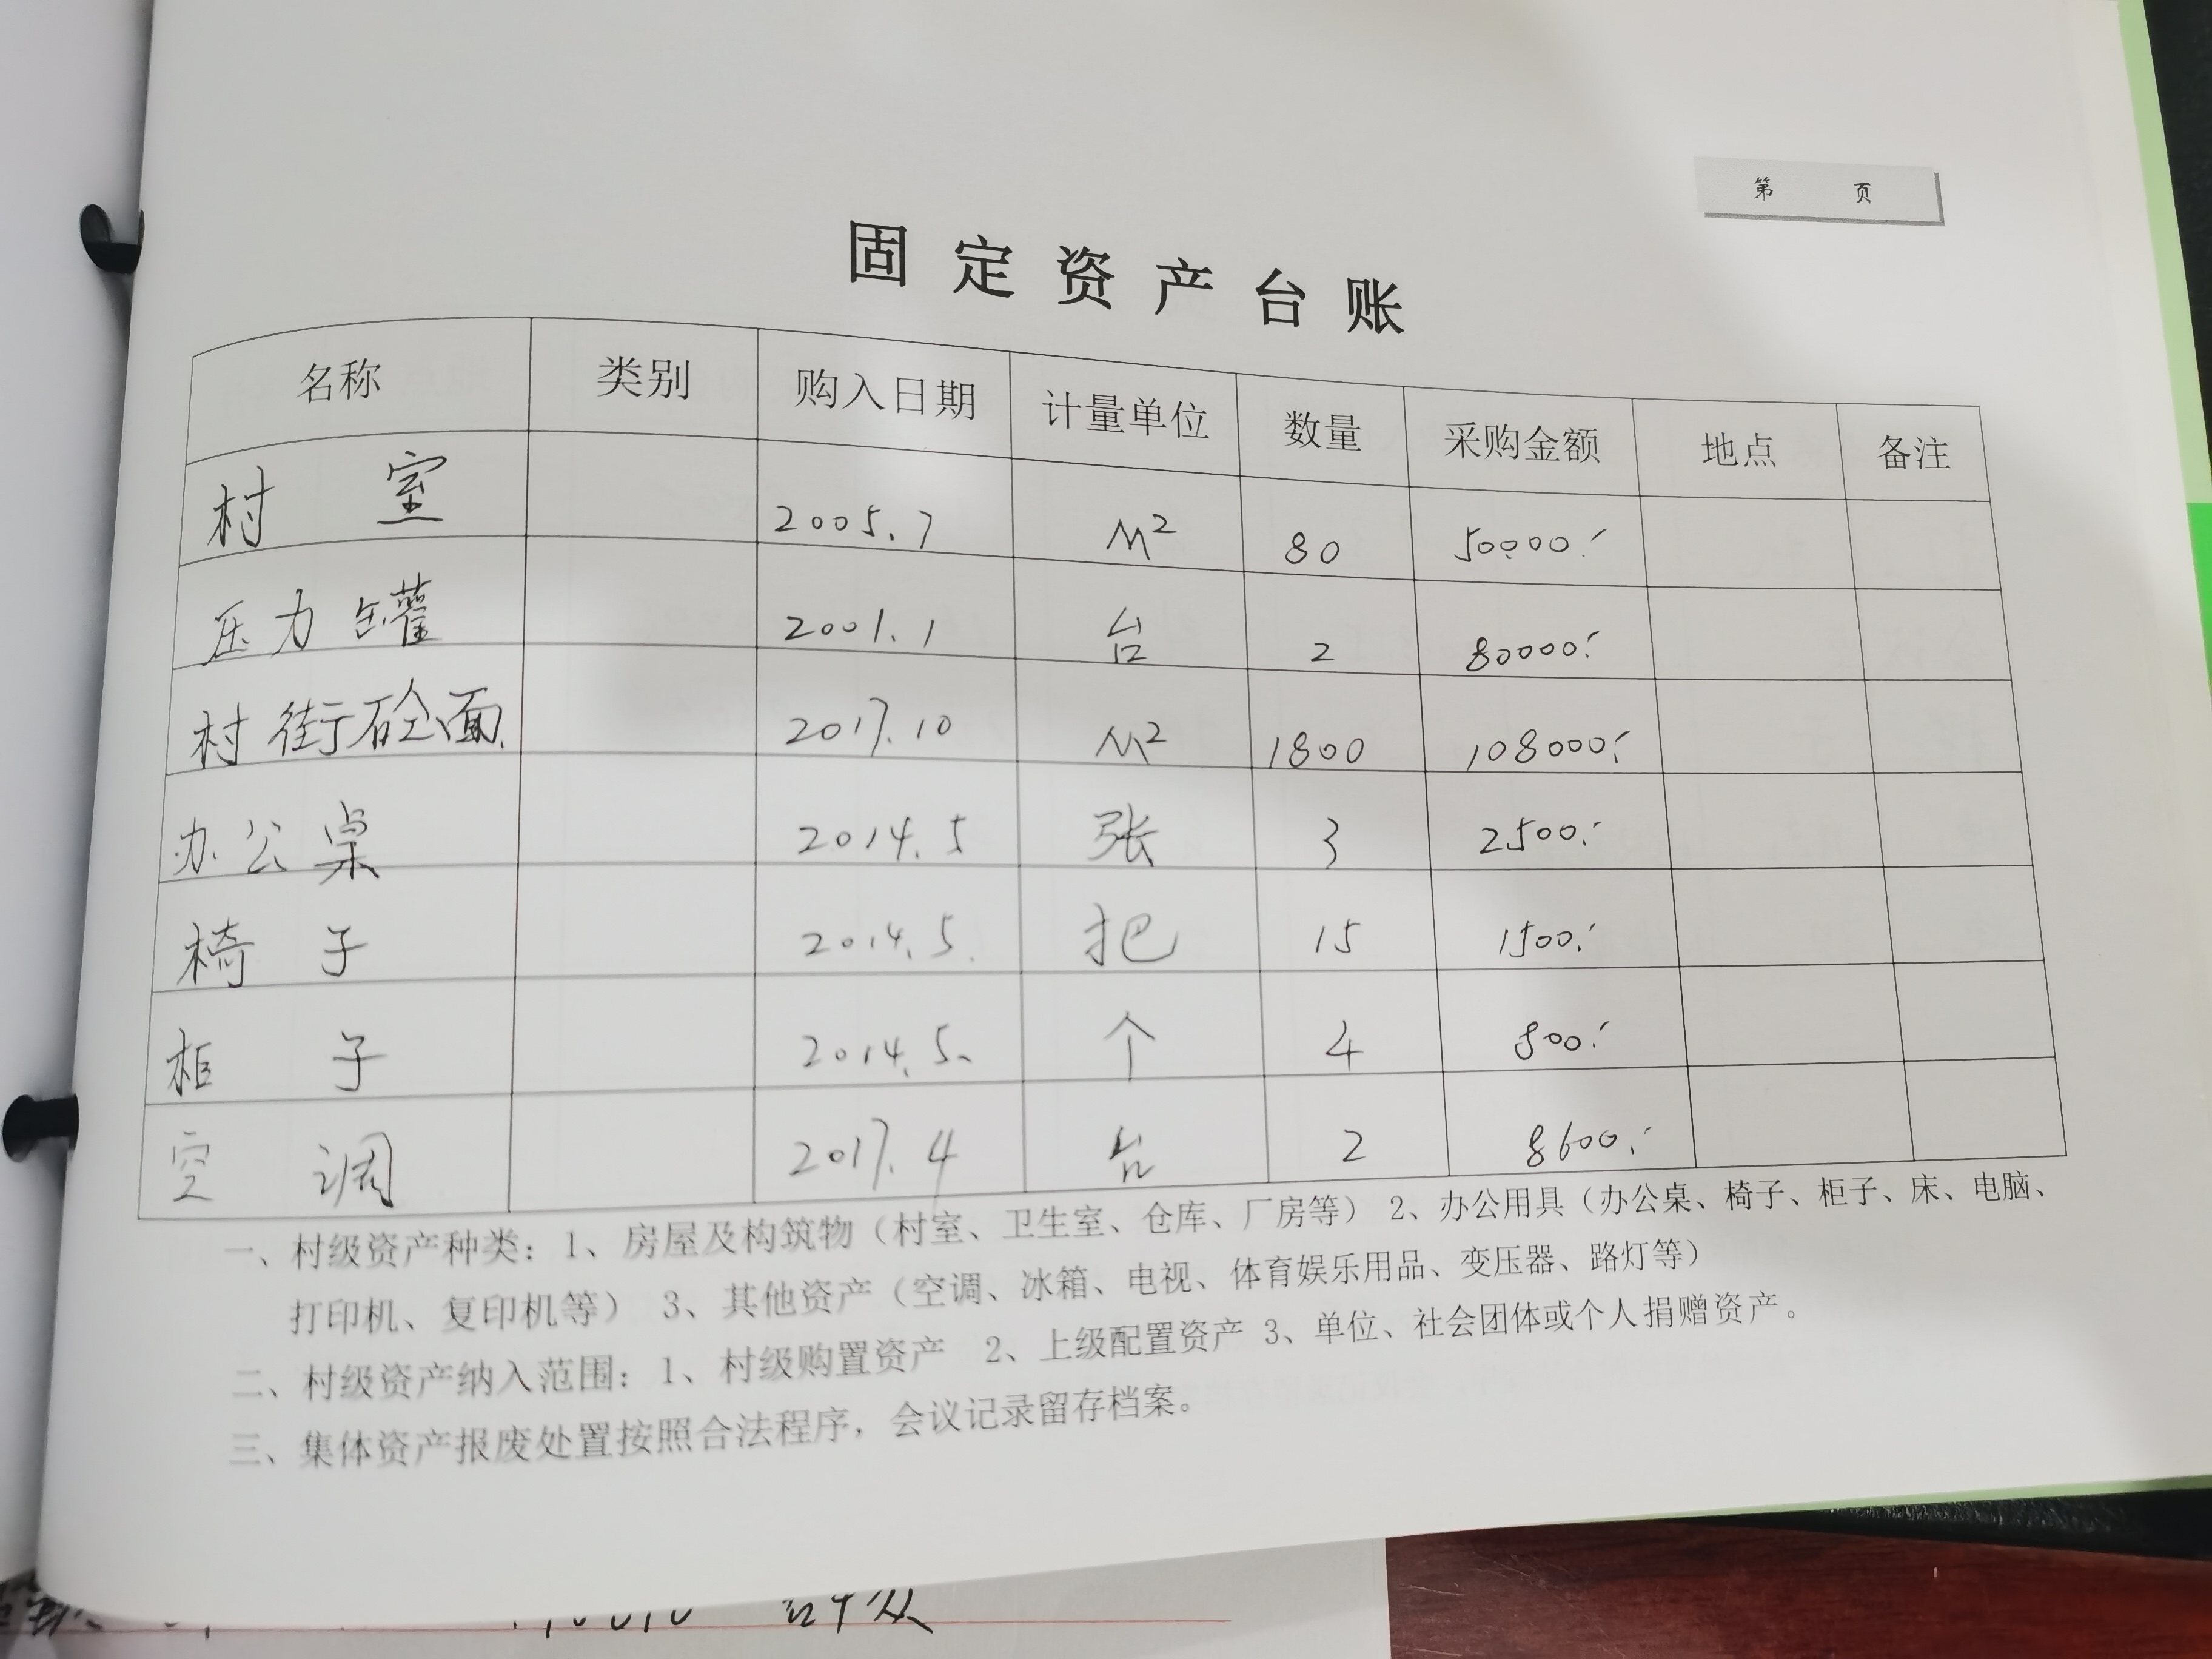 第 页
固定资产台账
名称 类别 购入日期 计量单位 数量 采购金额 地点 备注
村 室 2005.7 M² 80 50000.-
压力罐 2001.1 台 2 80000.-
村街砼面 2017.10 M² 1800 108000.-
办公桌 2014.5 张 3 2500.-
椅 子 2014.5. 把 15 1500.-
柜 子 2014.5. 个 4 800.-
空 调 2017.4 台 2 8600.-
一、村级资产种类：1、房屋及构筑物（村室、卫生室、仓库、厂房等） 2、办公用具（办公桌、椅子、柜子、床、电脑、
打印机、复印机等） 3、其他资产（空调、冰箱、电视、体育娱乐用品、变压器、路灯等）
二、村级资产纳入范围：1、村级购置资产 2、上级配置资产 3、单位、社会团体或个人捐赠资产。
三、集体资产报废处置按照合法程序，会议记录留存档案。